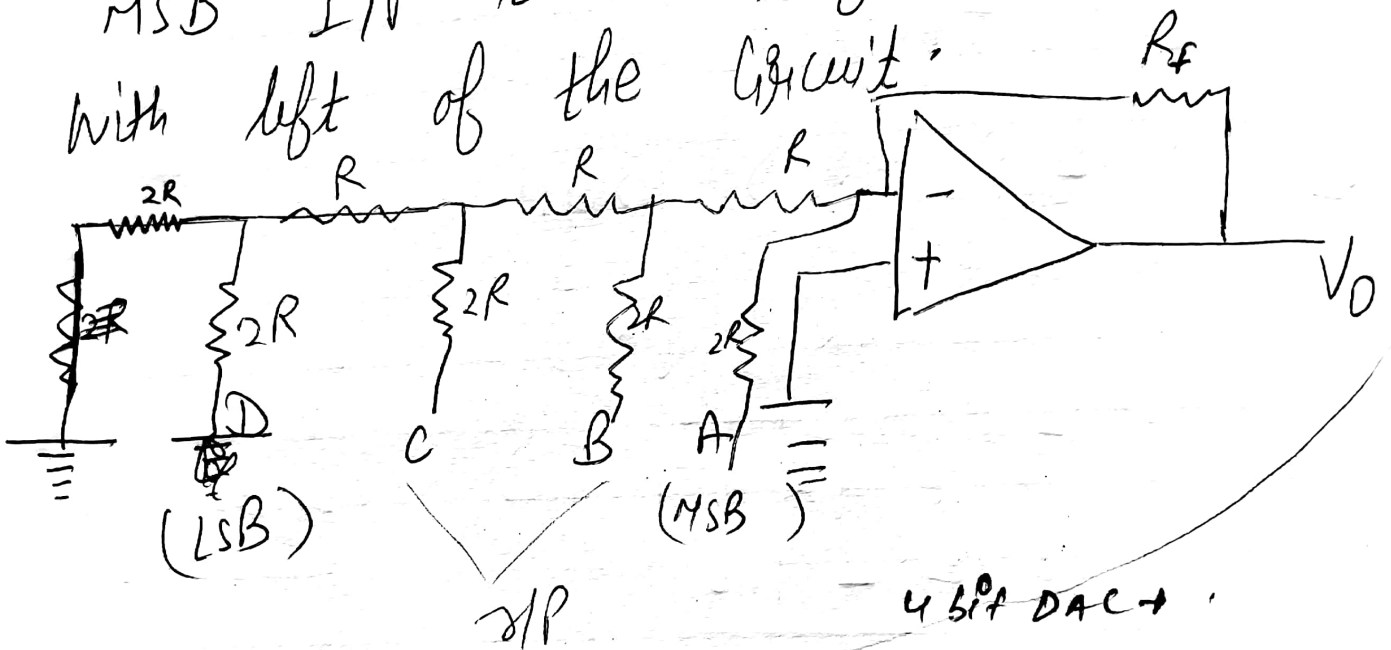 MSB I/P
with left of the Circuit.
Rf
2R R R R
-
2R 2R 2R 2R
+
V0
D
C B A
(LSB) (MSB)
I/P
4 bit DAC →